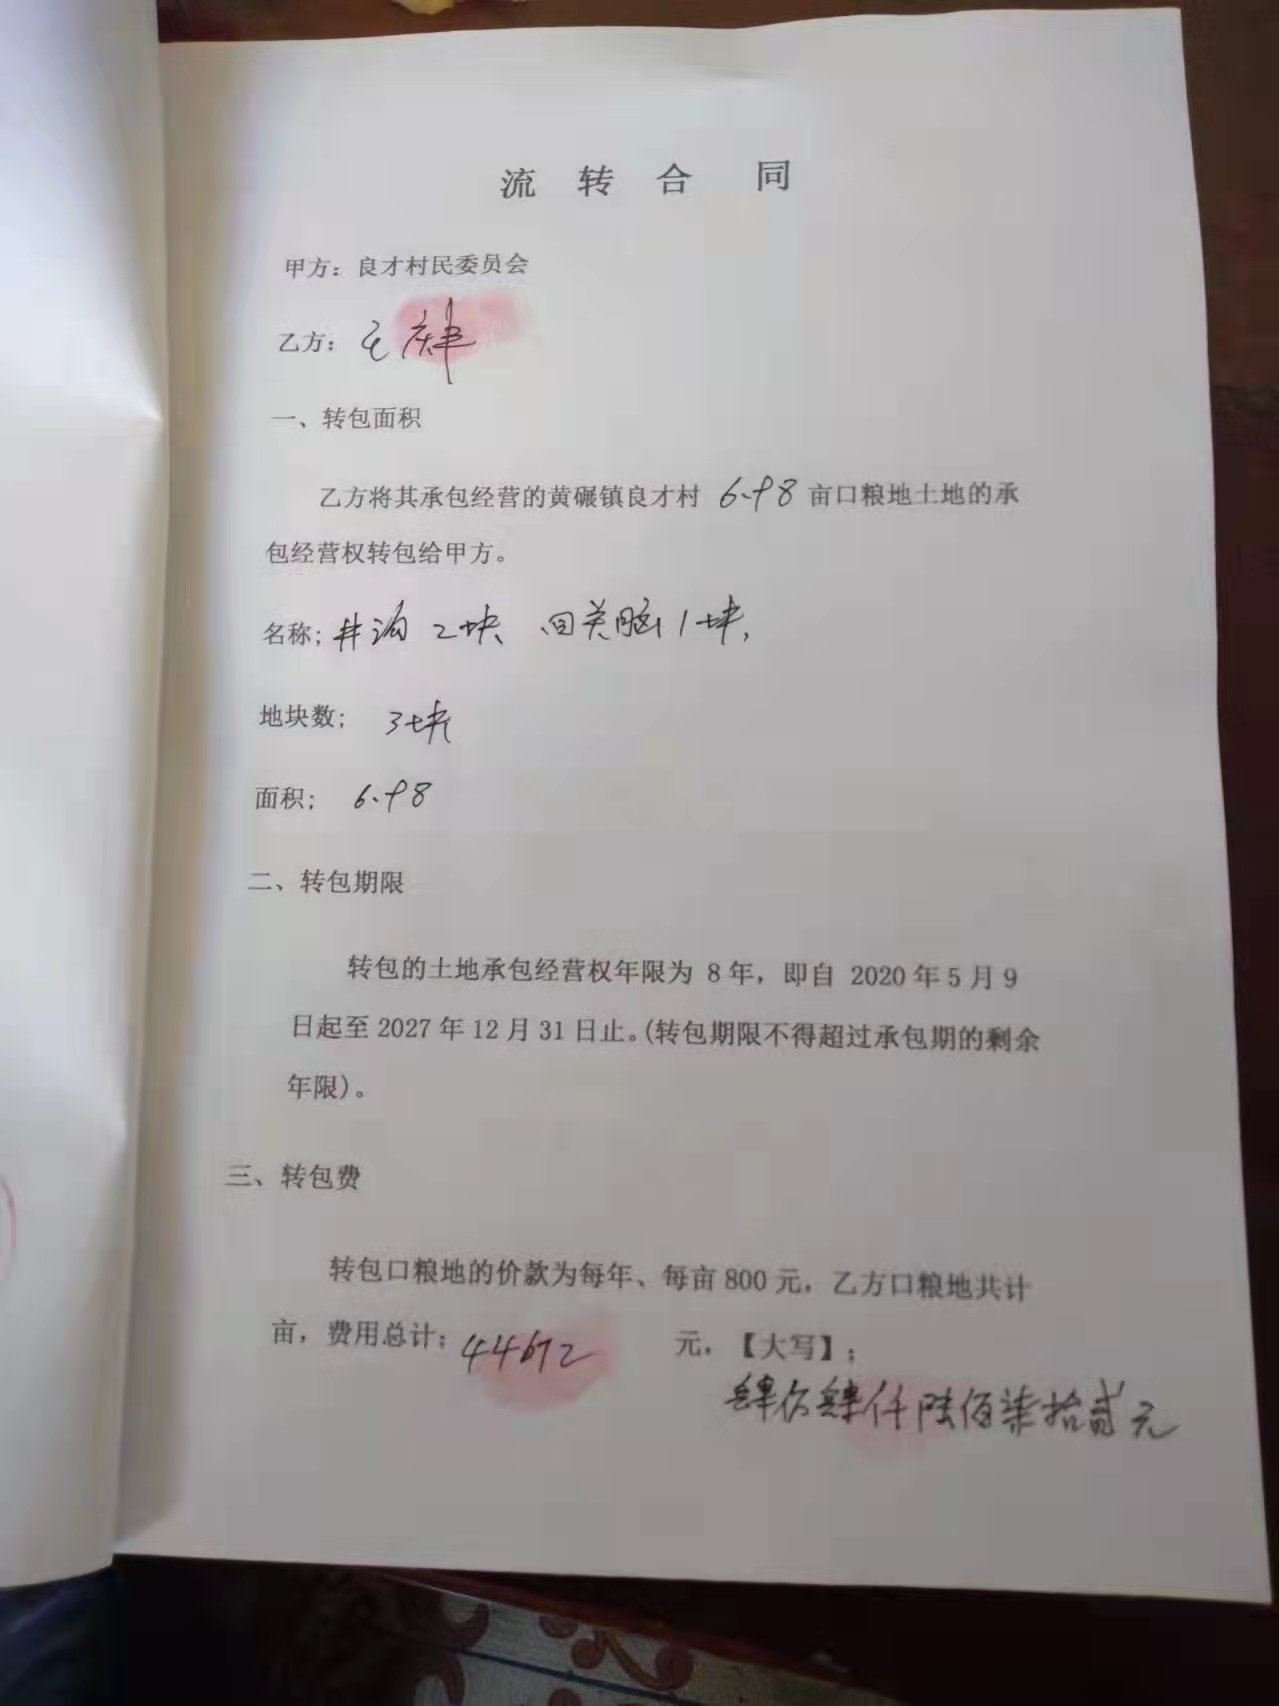 流 转 合 同
甲方：良才村民委员会
乙方：
一、转包面积
乙方将其承包经营的黄碾镇良才村 6.98 亩口粮地土地的承
包经营权转包给甲方。
名称; 井沟 2块、回关脑1块,
地块数; 3块
面积; 6.98
二、转包期限
转包的土地承包经营权年限为 8 年，即自 2020 年 5 月 9
日起至 2027 年 12 月 31 日止。(转包期限不得超过承包期的剩余
年限)。
三、转包费
转包口粮地的价款为每年、每亩 800 元，乙方口粮地共计
亩，费用总计; 44672 元，【大写】;
肆万肆仟陆佰柒拾贰元